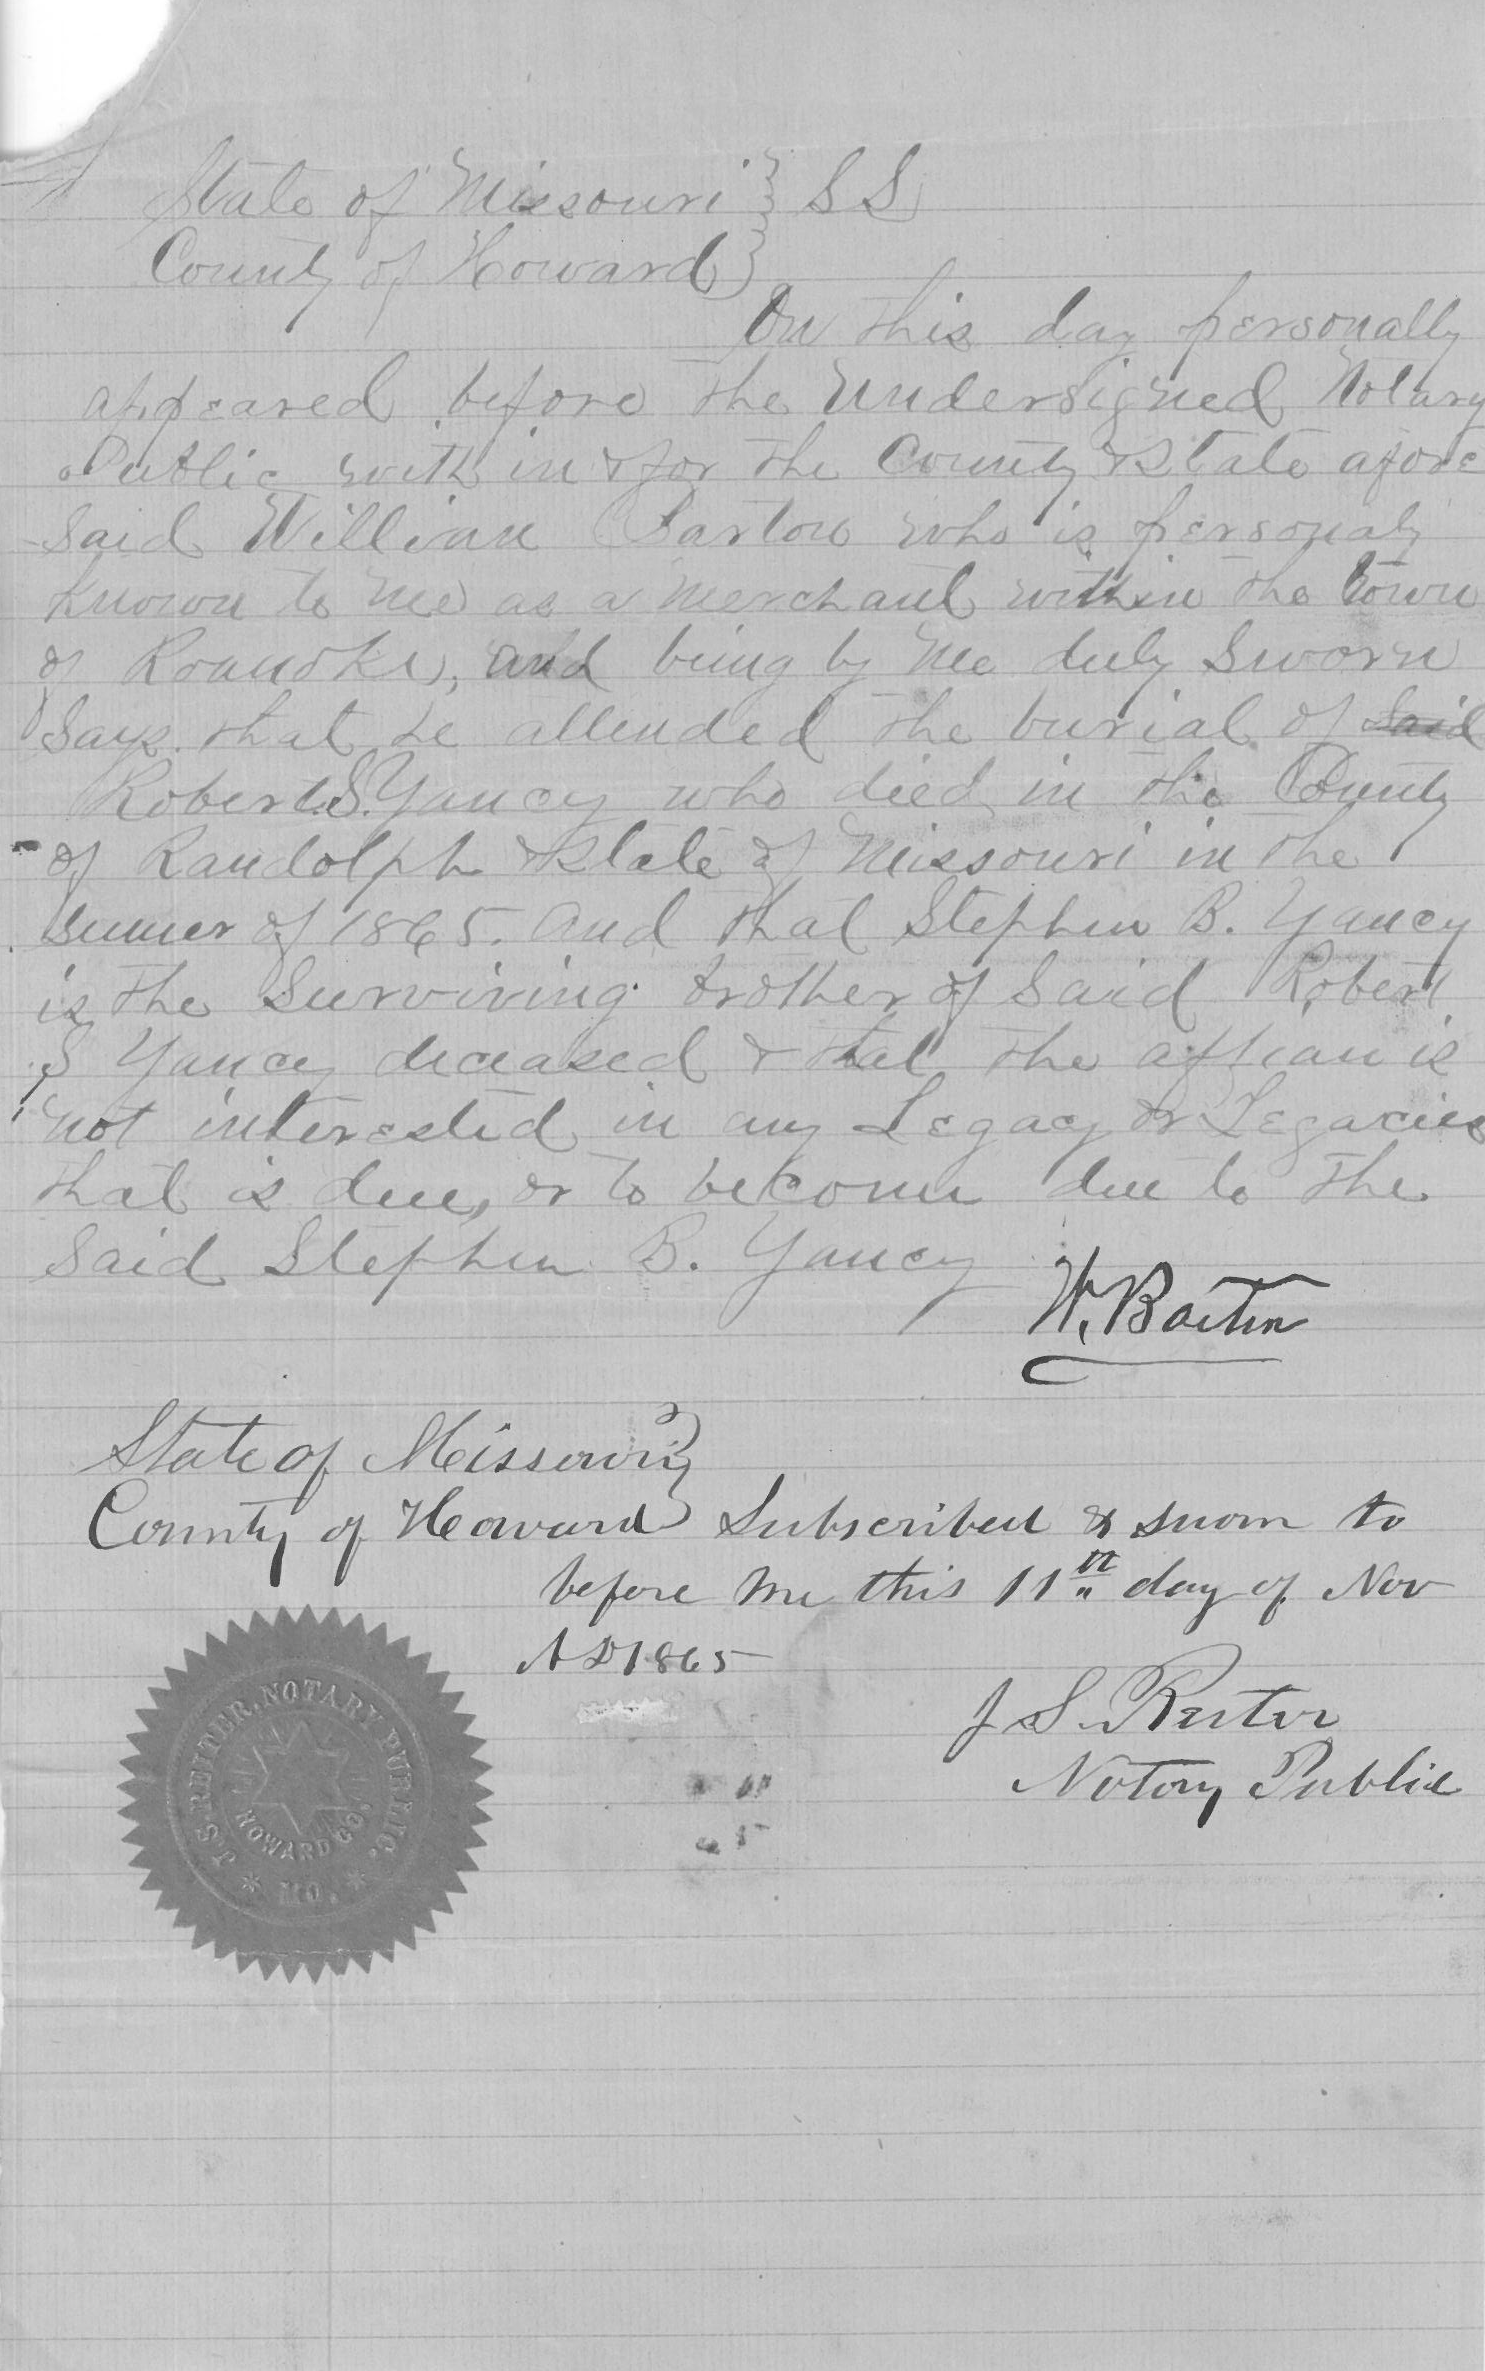 State of Missouri } SS
County of Howard }
On this day personally
appeared before the undersigned Notary
Public with in & for the County & State afore
said William Barton who is personaly
known to me as a merchant within the town
of Roanoke, and being by me duly sworn
says that he attended the burial of said
Robert S. Yancy who died in the County
of Randolph & State of Missouri in the
sumer of 1865. And that Stephen B. Yancy
is the surviving brother of said Robert
S Yancy deceased & that the affian is
not interested in any Legacy or Legacies
that is due, or to become due to the
said Stephen B. Yancy
W. Barton
State of Missouri }
County of Howard } Subscribed & sworn to
before me this 11th day of Nov
AD 1865
J S. Reiter
Notary Public
J. S. REITER, NOTARY PUBLIC.
HOWARD CO.
* MO. *